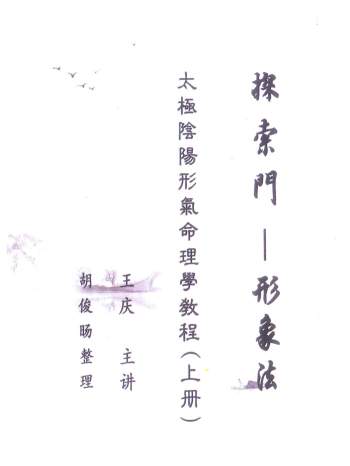 探索門—形象法
太極陰陽形氣命理學教程(上册)
王庆 主讲
胡俊旸整理